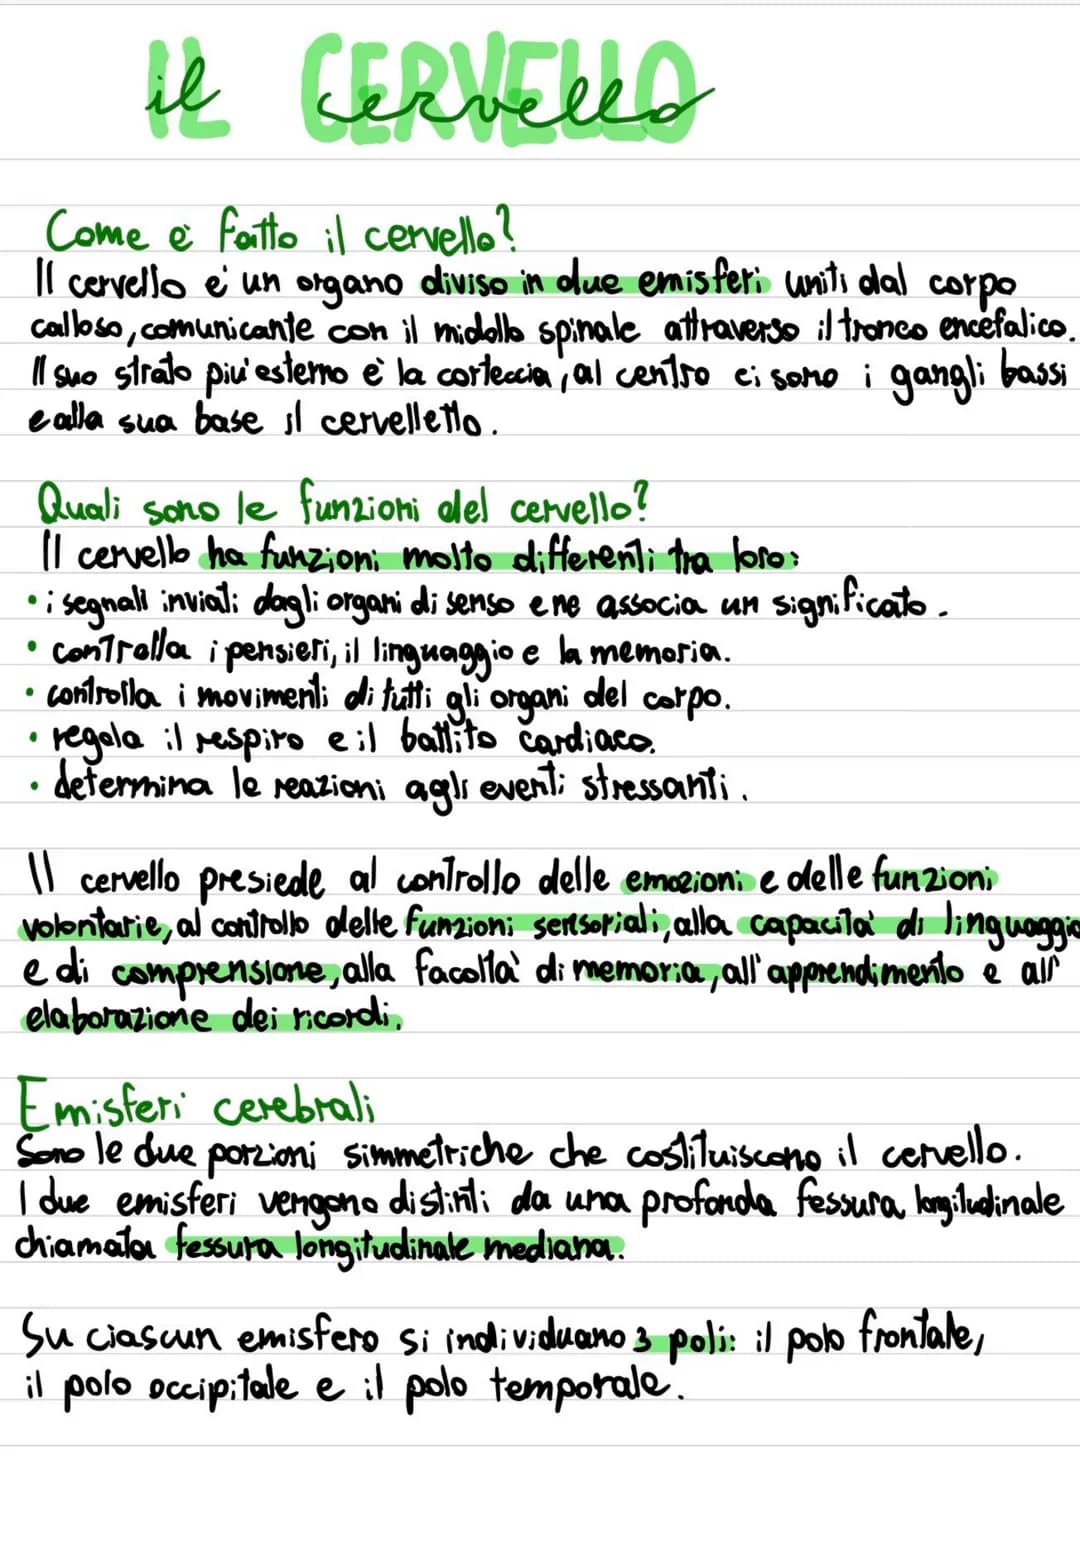 IL CERVELLO
il cervello
Come è fatto il cervello?
Il cervello e' un organo diviso in due emisferi uniti dal corpo
calloso, comunicante con il midollo spinale attraverso il tronco encefalico.
Il suo strato piu' esterno è la corteccia, al centro ci sono i gangli bassi
e alla sua base il cervelletto.
Quali sono le funzioni del cervello?
Il cervello ha funzioni molto differenti tra loro:
• i segnali inviati dagli organi di senso e ne associa un significato.
• controlla i pensieri, il linguaggio e la memoria.
• controlla i movimenti di tutti gli organi del corpo.
• regola il respiro e il battito cardiaco.
• determina le reazioni agli eventi stressanti.
Il cervello presiede al controllo delle emozioni e delle funzioni
volontarie, al controllo delle funzioni sensoriali, alla capacita' di linguaggio
e di comprensione, alla facolta' di memoria, all'apprendimento e all'
elaborazione dei ricordi.
Emisferi cerebrali
Sono le due porzioni simmetriche che costituiscono il cervello.
I due emisferi vengono distinti da una profonda fessura longitudinale
chiamata fessura longitudinale mediana.
Su ciascun emisfero si individuano 3 poli: il polo frontale,
il polo occipitale e il polo temporale.